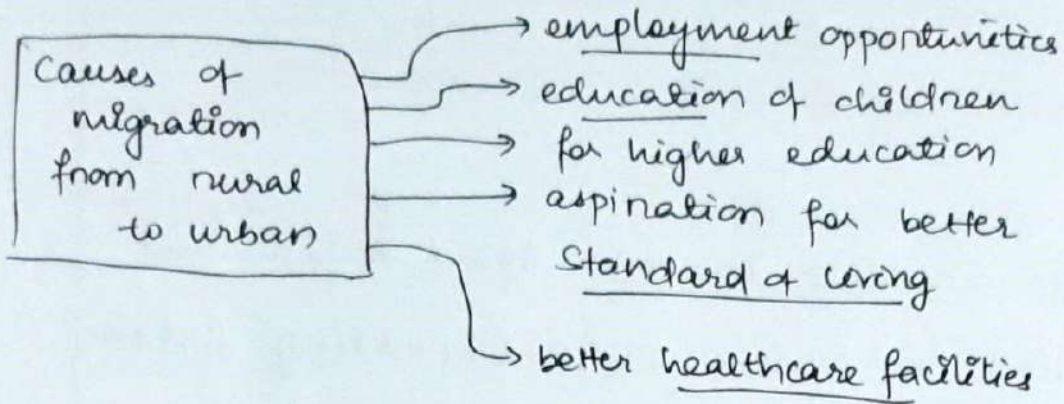 Causes of
migration
from rural
to urban
employment opportunities
education of children
for higher education
aspiration for better
standard of living
better healthcare facilities